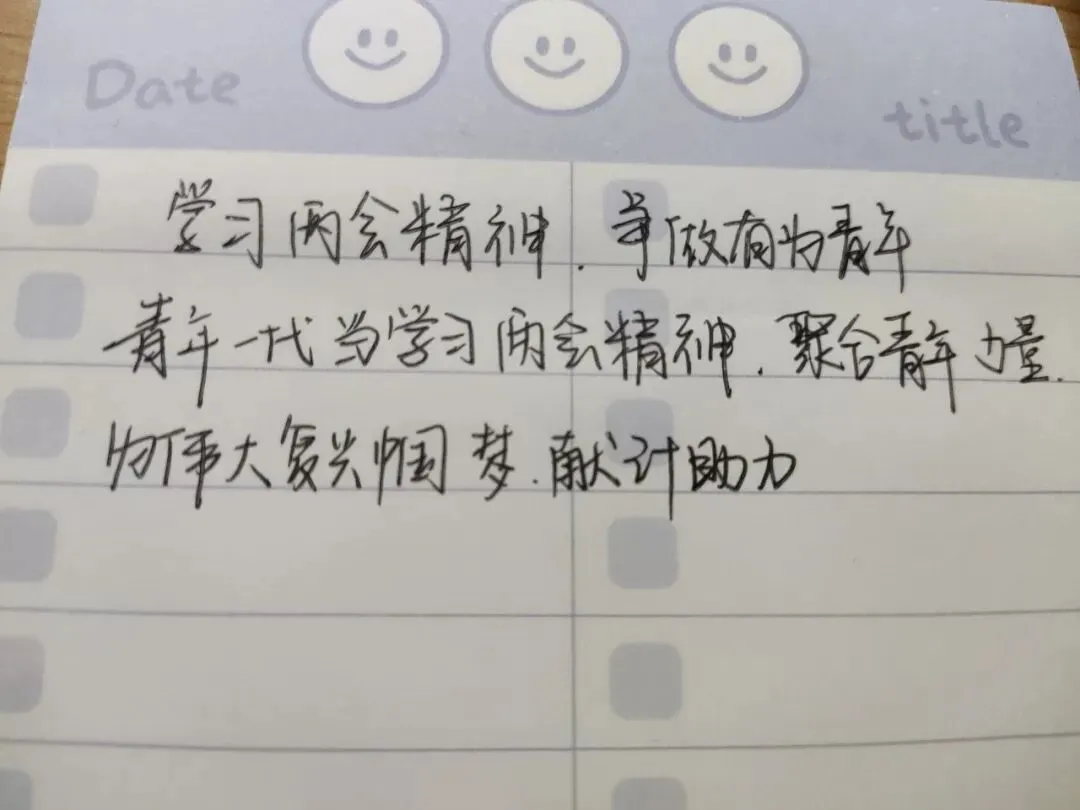 Date
title
学习两会精神.争做有为青年
青年一代当学习两会精神.聚合青年力量.
为伟大复兴中国梦.献计助力